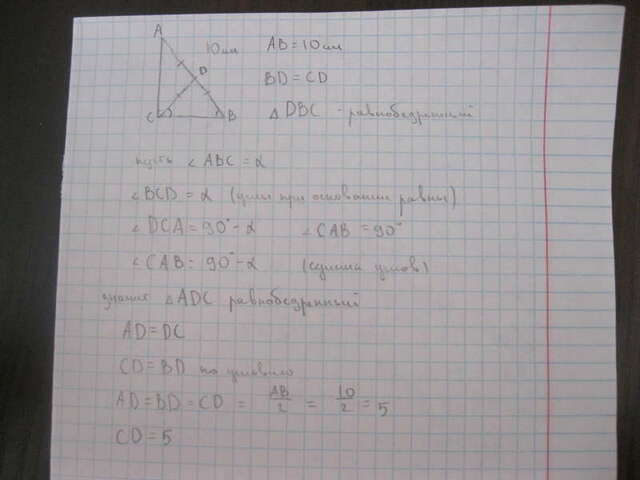 A
10см AB = 10см
D BD = CD
C B △DBC - равнобедренный
пусть ∠ABC = α
∠BCD = α (углы при основании равны)
∠DCA = 90° - α ∠CAB = 90°
∠CAB = 90° - α (сумма углов)
значит △ADC равнобедренный
AD = DC
CD = BD по условию
AD = BD = CD = AB/2 = 10/2 = 5
CD = 5